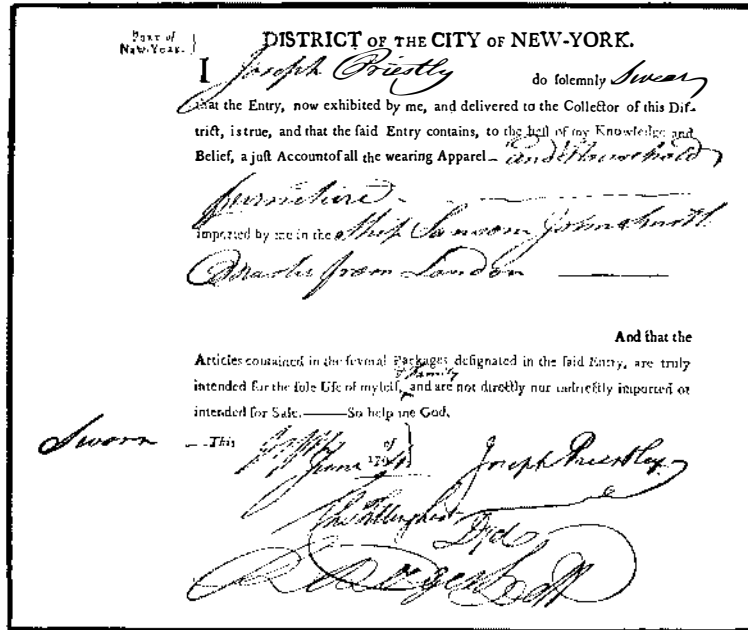 Port of
New-York. }
DISTRICT OF THE CITY OF NEW-YORK.
I Joseph Priestly do solemnly Swear
that the Entry, now exhibited by me, and delivered to the Collector of this Dis-
trict, is true, and that the said Entry contains, to the best of my Knowledge and
Belief, a just Account of all the wearing Apparel – and Household
furniture
imported by me in the Ship Sansom
Master from London
And that the
Articles contained in the several Packages designated in the said Entry, are truly
& Family
intended for the sole Use of myself, and are not directly nor indirectly imported or
intended for Sale.——So help me God,
Sworn — This of
June 179 Joseph Priestley